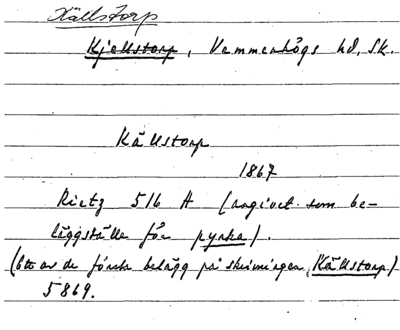 Källstorp
Kjellstorp, Vemmenhögs hd, Sk.
Källstorp
1867
Rietz 516 A (angivet som be-
läggställe för pynka).
(Ett av de första belägg på skrivningen Källstorp)
5869.